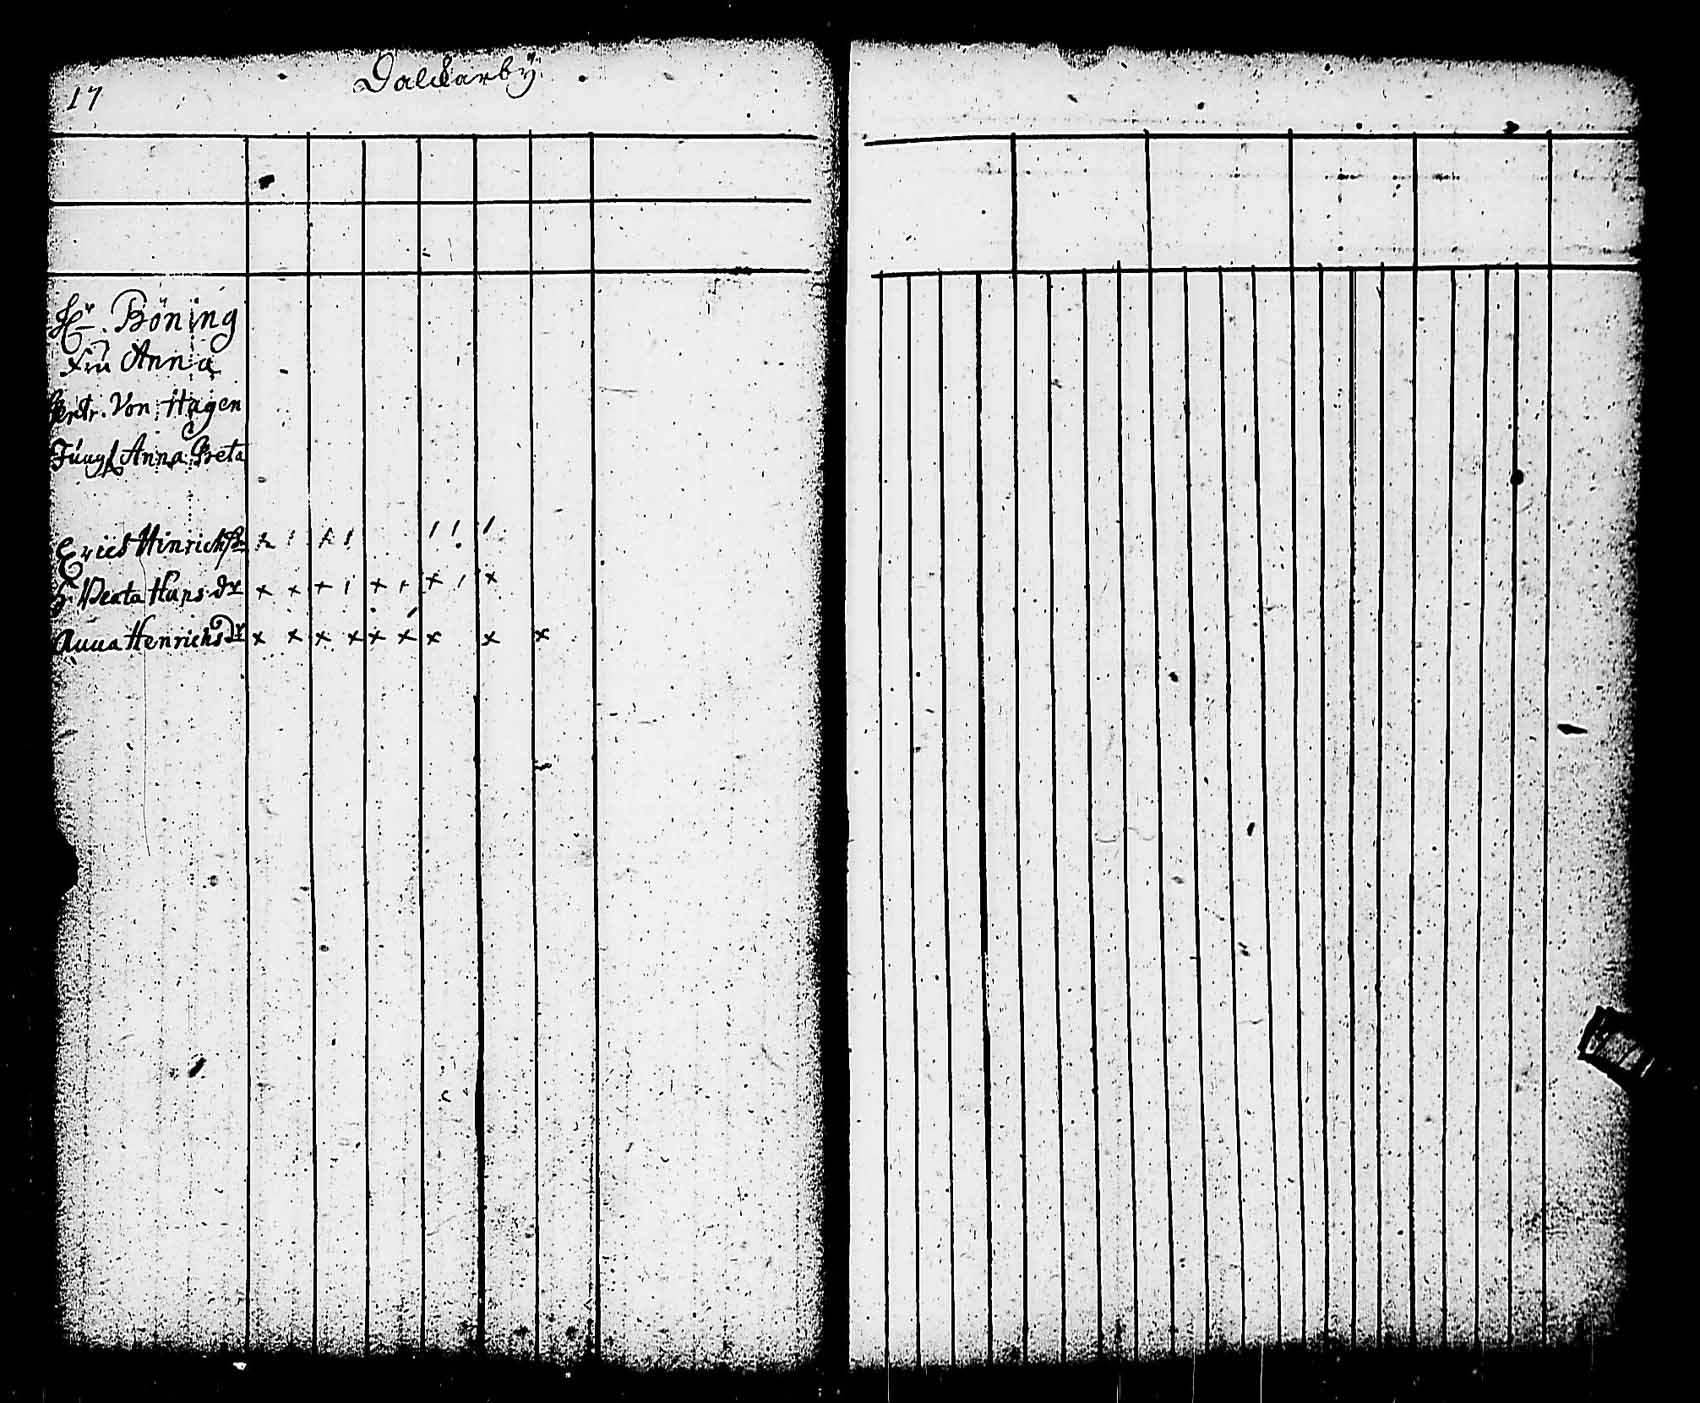 17
Dalckarbÿ
Hr. Böning
Fru Anna
Gertr. Von Hagen
Jungf Anna Greta
Erich Hinrichss.
h. Beata Hans dr
Anna Henrichs dr